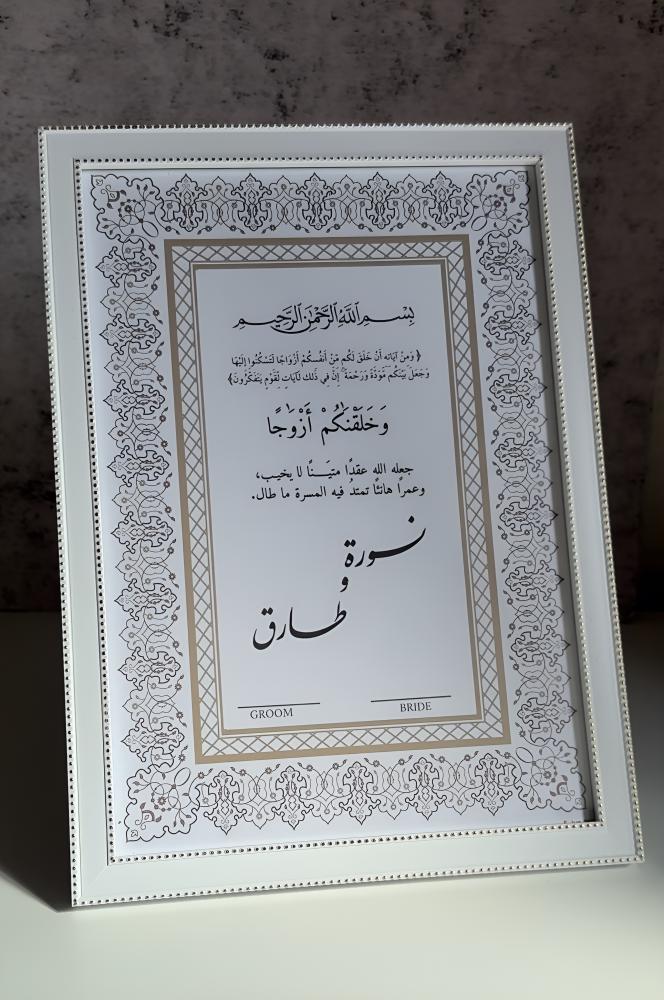 بِسْمِ ٱللَّهِ ٱلرَّحْمَٰنِ ٱلرَّحِيمِ
﴿ وَمِنْ آيَاتِهِ أَنْ خَلَقَ لَكُم مِّنْ أَنفُسِكُمْ أَزْوَاجًا لِّتَسْكُنُوا إِلَيْهَا
وَجَعَلَ بَيْنَكُم مَّوَدَّةً وَرَحْمَةً ۚ إِنَّ فِي ذَٰلِكَ لَآيَاتٍ لِّقَوْمٍ يَتَفَكَّرُونَ﴾
وَخَلَقْنَٰكُمْ أَزْوَٰجًا
جعله الله عقدًا متيَـنْـًا لا يخيب،
وعمرًا هانئًا تمتدُ فيه المسرة ما طال.
نورة
و
طارق
GROOM
BRIDE